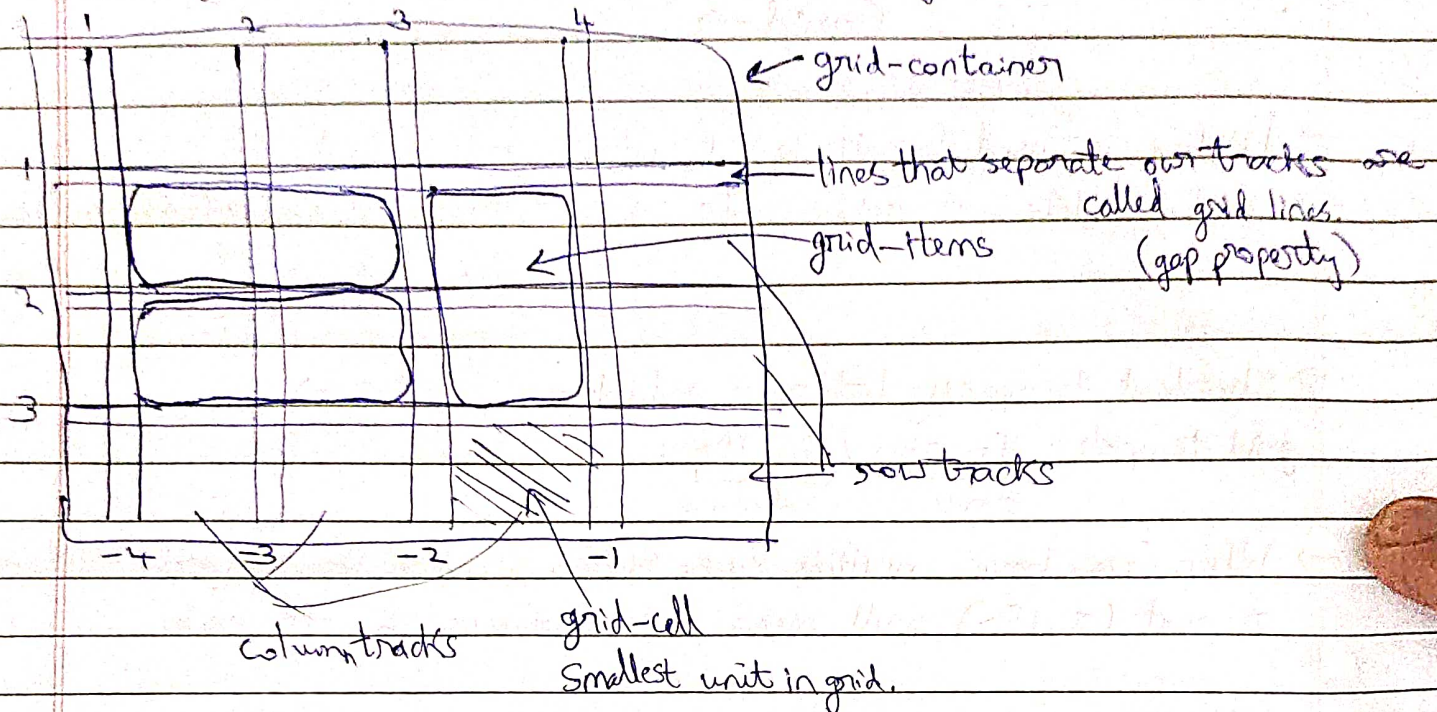 1 2 3 4
grid-container
1
lines that separate our tracks are
called grid lines.
grid-items
(gap property)
2
3
row tracks
-4 -3 -2 -1
column tracks
grid-cell
Smallest unit in grid.